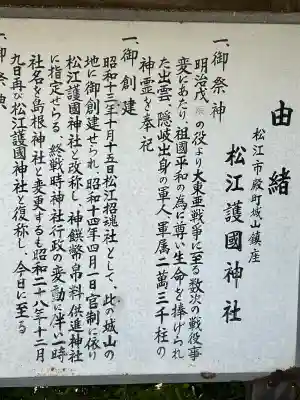 由緒
松江市殿町城山鎮座
松江護國神社
一、御祭神
明治戊辰の役より大東亜戦争に至る数次の戦役事
変にあたり、祖國平和の為に尊い生命を捧げられ
た出雲、隠岐出身の軍人、軍属二萬三千柱の
神霊を奉祀
一、御創建
昭和十三年十月十五日松江招魂社として、此の城山の
地に御創建せられ、昭和十四年四月一日官制に依り
松江護國神社と改称し、神饌幣帛料供進神社
に指定せらる。終戦時神社行政の変動に伴い一時
社名を島根神社と変更するも昭和二十八年十二月
九日再び松江護國神社と復称し、今日に至る
一、御祭典